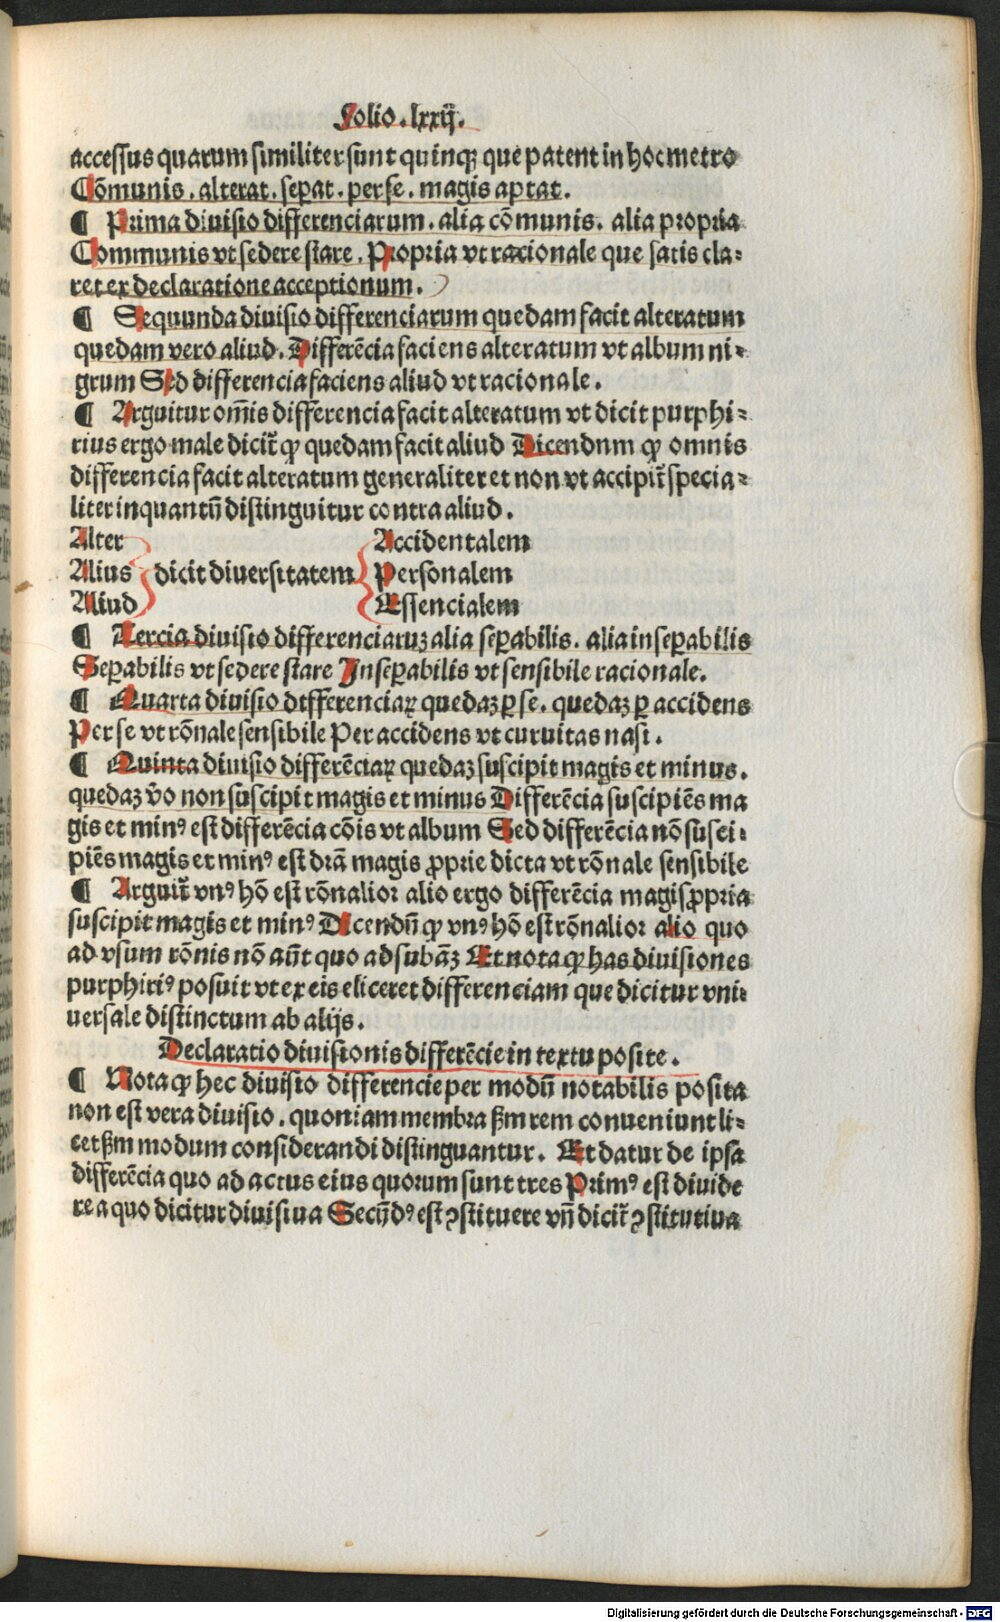 Folio . lxxij.
accessus quarum similiter sunt quinqꝫ que patent in hoc metro
Cōmunis . alterat . sepat . per se . magis aptat .
¶ Prima diuisio differenciarum . alia cōmunis . alia propria
Communis vt sedere stare . Propria vt racionale que satis cla⸗
ret ex declaratione acceptionum .
¶ Sequunda diuisio differenciarum quedam facit alteratum
quedam vero aliud . Differēcia faciens alteratum vt album ni⸗
grum Sed differencia faciens aliud vt racionale .
¶ Arguitur om̄is differencia facit alteratum vt dicit purphi⸗
rius ergo male dicit̄ ꝙ quedam facit aliud Dicendnm ꝙ omnis
differencia facit alteratum generaliter et non vt accipit̄ specia⸗
liter inquantū distinguitur contra aliud .
Alter Accidentalem
Alius dicit diuersitatem Personalem
Aliud Essencialem
¶ Tercia diuisio differenciaruꝫ alia seꝑabilis . alia inseꝑabilis
Seꝑabilis vt sedere stare Inseꝑabilis vt sensibile racionale .
¶ Quarta diuisio dtfferenciaꝝ quedaꝫ ꝑ se . quedaꝫ ꝑ accidens
Per se vt rōnale sensibile Per accidens vt curuitas nasi .
¶ Quinta diuisio differēciaꝝ quedaꝫ suscipit magis et minus .
quedaꝫ v̄o non suscipit magis et minus Differēcia suscipiēs ma
gis et minꝰ est differēcia cōis vt album Sed differēcia nō susci⸗
piēs magis et minꝰ est dr̄a magis ꝓprie dicta vt rōnale sensibile
¶ Arguit̄ vnꝰ hō est rōnalior alio ergo differēcia magis ꝓpria
suscipit magis et minꝰ Dicendū ꝙ vnꝰ hō est rōnalior alio quo
ad vsum rōnis nō aūt quo ad subāꝫ Et nota ꝙ has diuisiones
purphiriꝰ posuit vt ex eis eliceret differenciam que dicitur vni⸗
uersale distinctum ab alijs .
Declaratio diuisionis differēcie in textu posite .
¶ Nota ꝙ hec diuisio differencie per modū notabilis posita
non est vera diuisio . quoniam membra ẜm rem conueniunt li⸗
cet ẜm modum considerandi distinguantur . Et datur de ipsa
differēcia quo ad actus eius quorum sunt tres Primꝰ est diuide
re a quo dicitur diuisiua Secūdꝰ est ꝯstituere vn̄ dicit̄ ꝯstitutiua
Digitalisierung gefördert durch die Deutsche Forschungsgemeinschaft - DFG